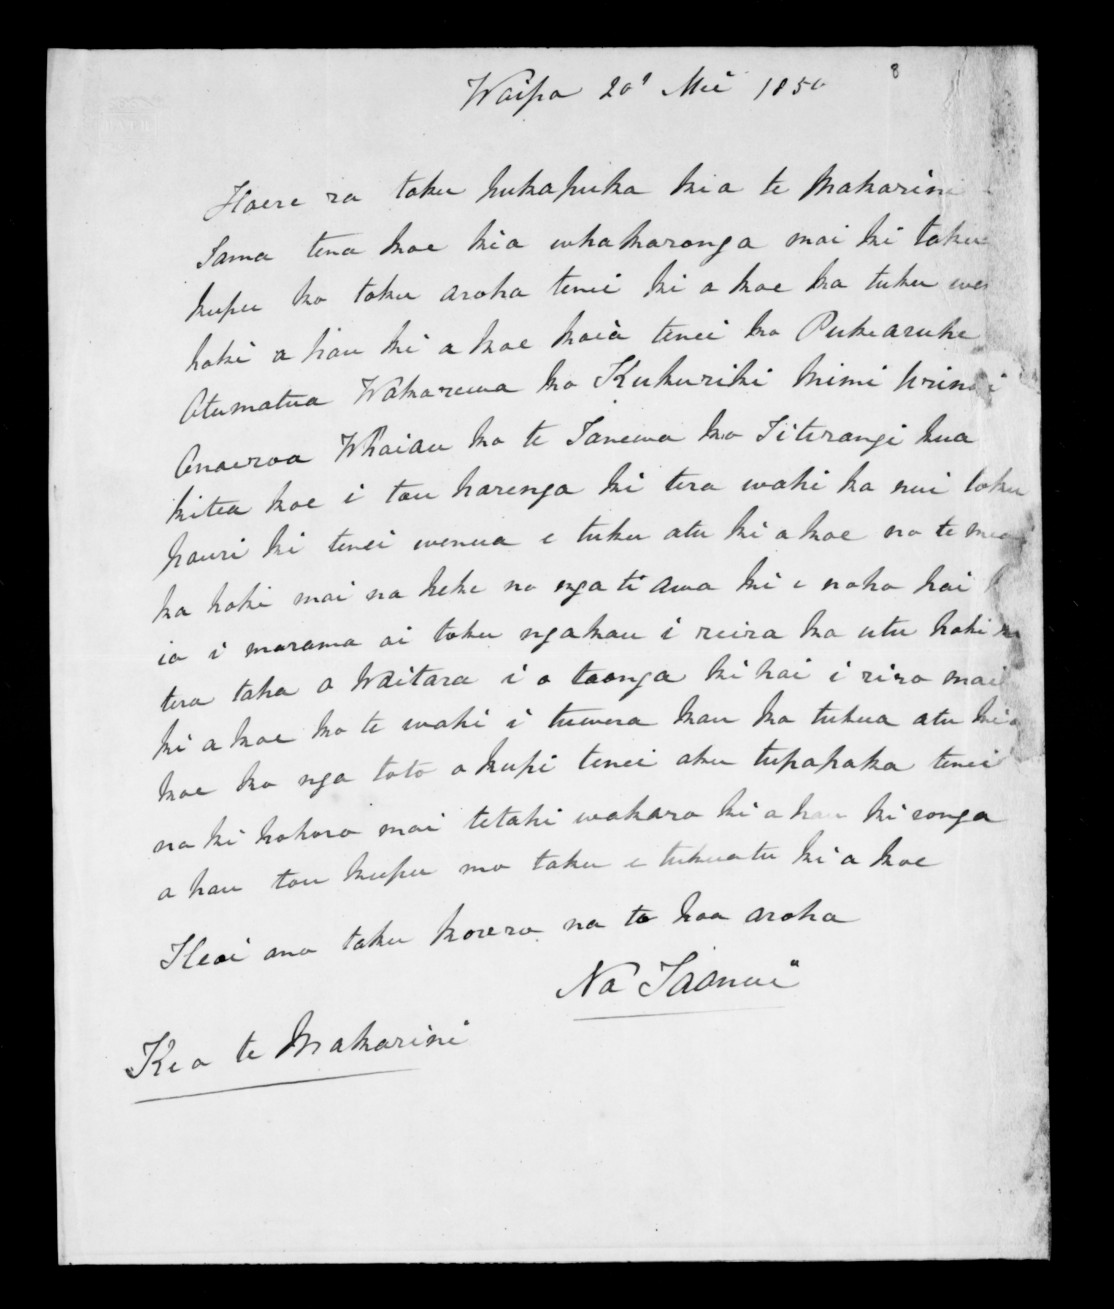 8
Waipa 20 Mei 1850
Haere ra toku pukapuka kia te Makarini
Tama tena koe kia whakaronga mai ki toku
kupu ko toku aroha tenei ki a koe ka tuku
hoki a hau ki a koe koia tenei ko Pukearuhe
Atumatua Wakarewa ko Kukuriki Mimi
Anaeroa Whaiau ko te Taniwa ko Titirangi kua
kitea koe i tou harenga ki tera wahi ka nui toku
pouri ki tenei wenua e tuku atu ki a koe no te mea
ka hoki mai na heke no nga ti awa ki e noho hai
ia i marama ai toku ngakau i reira ka utu hoki
tera taha o Waitara i o taonga ki hai i riro mai
ki a koe ko te wahi i tuwera kau ka tukua atu kia
koe ko nga toto o kupi tenei aku tupapaka tenei
na ki hohoro mai tetahi wakaro ki a hau ki ronga
a hau tou kupu mo toku e tukuatu ki a koe
Heoi ano taku korero na to hoa aroha
Na Taonui
Ki a te Makarini